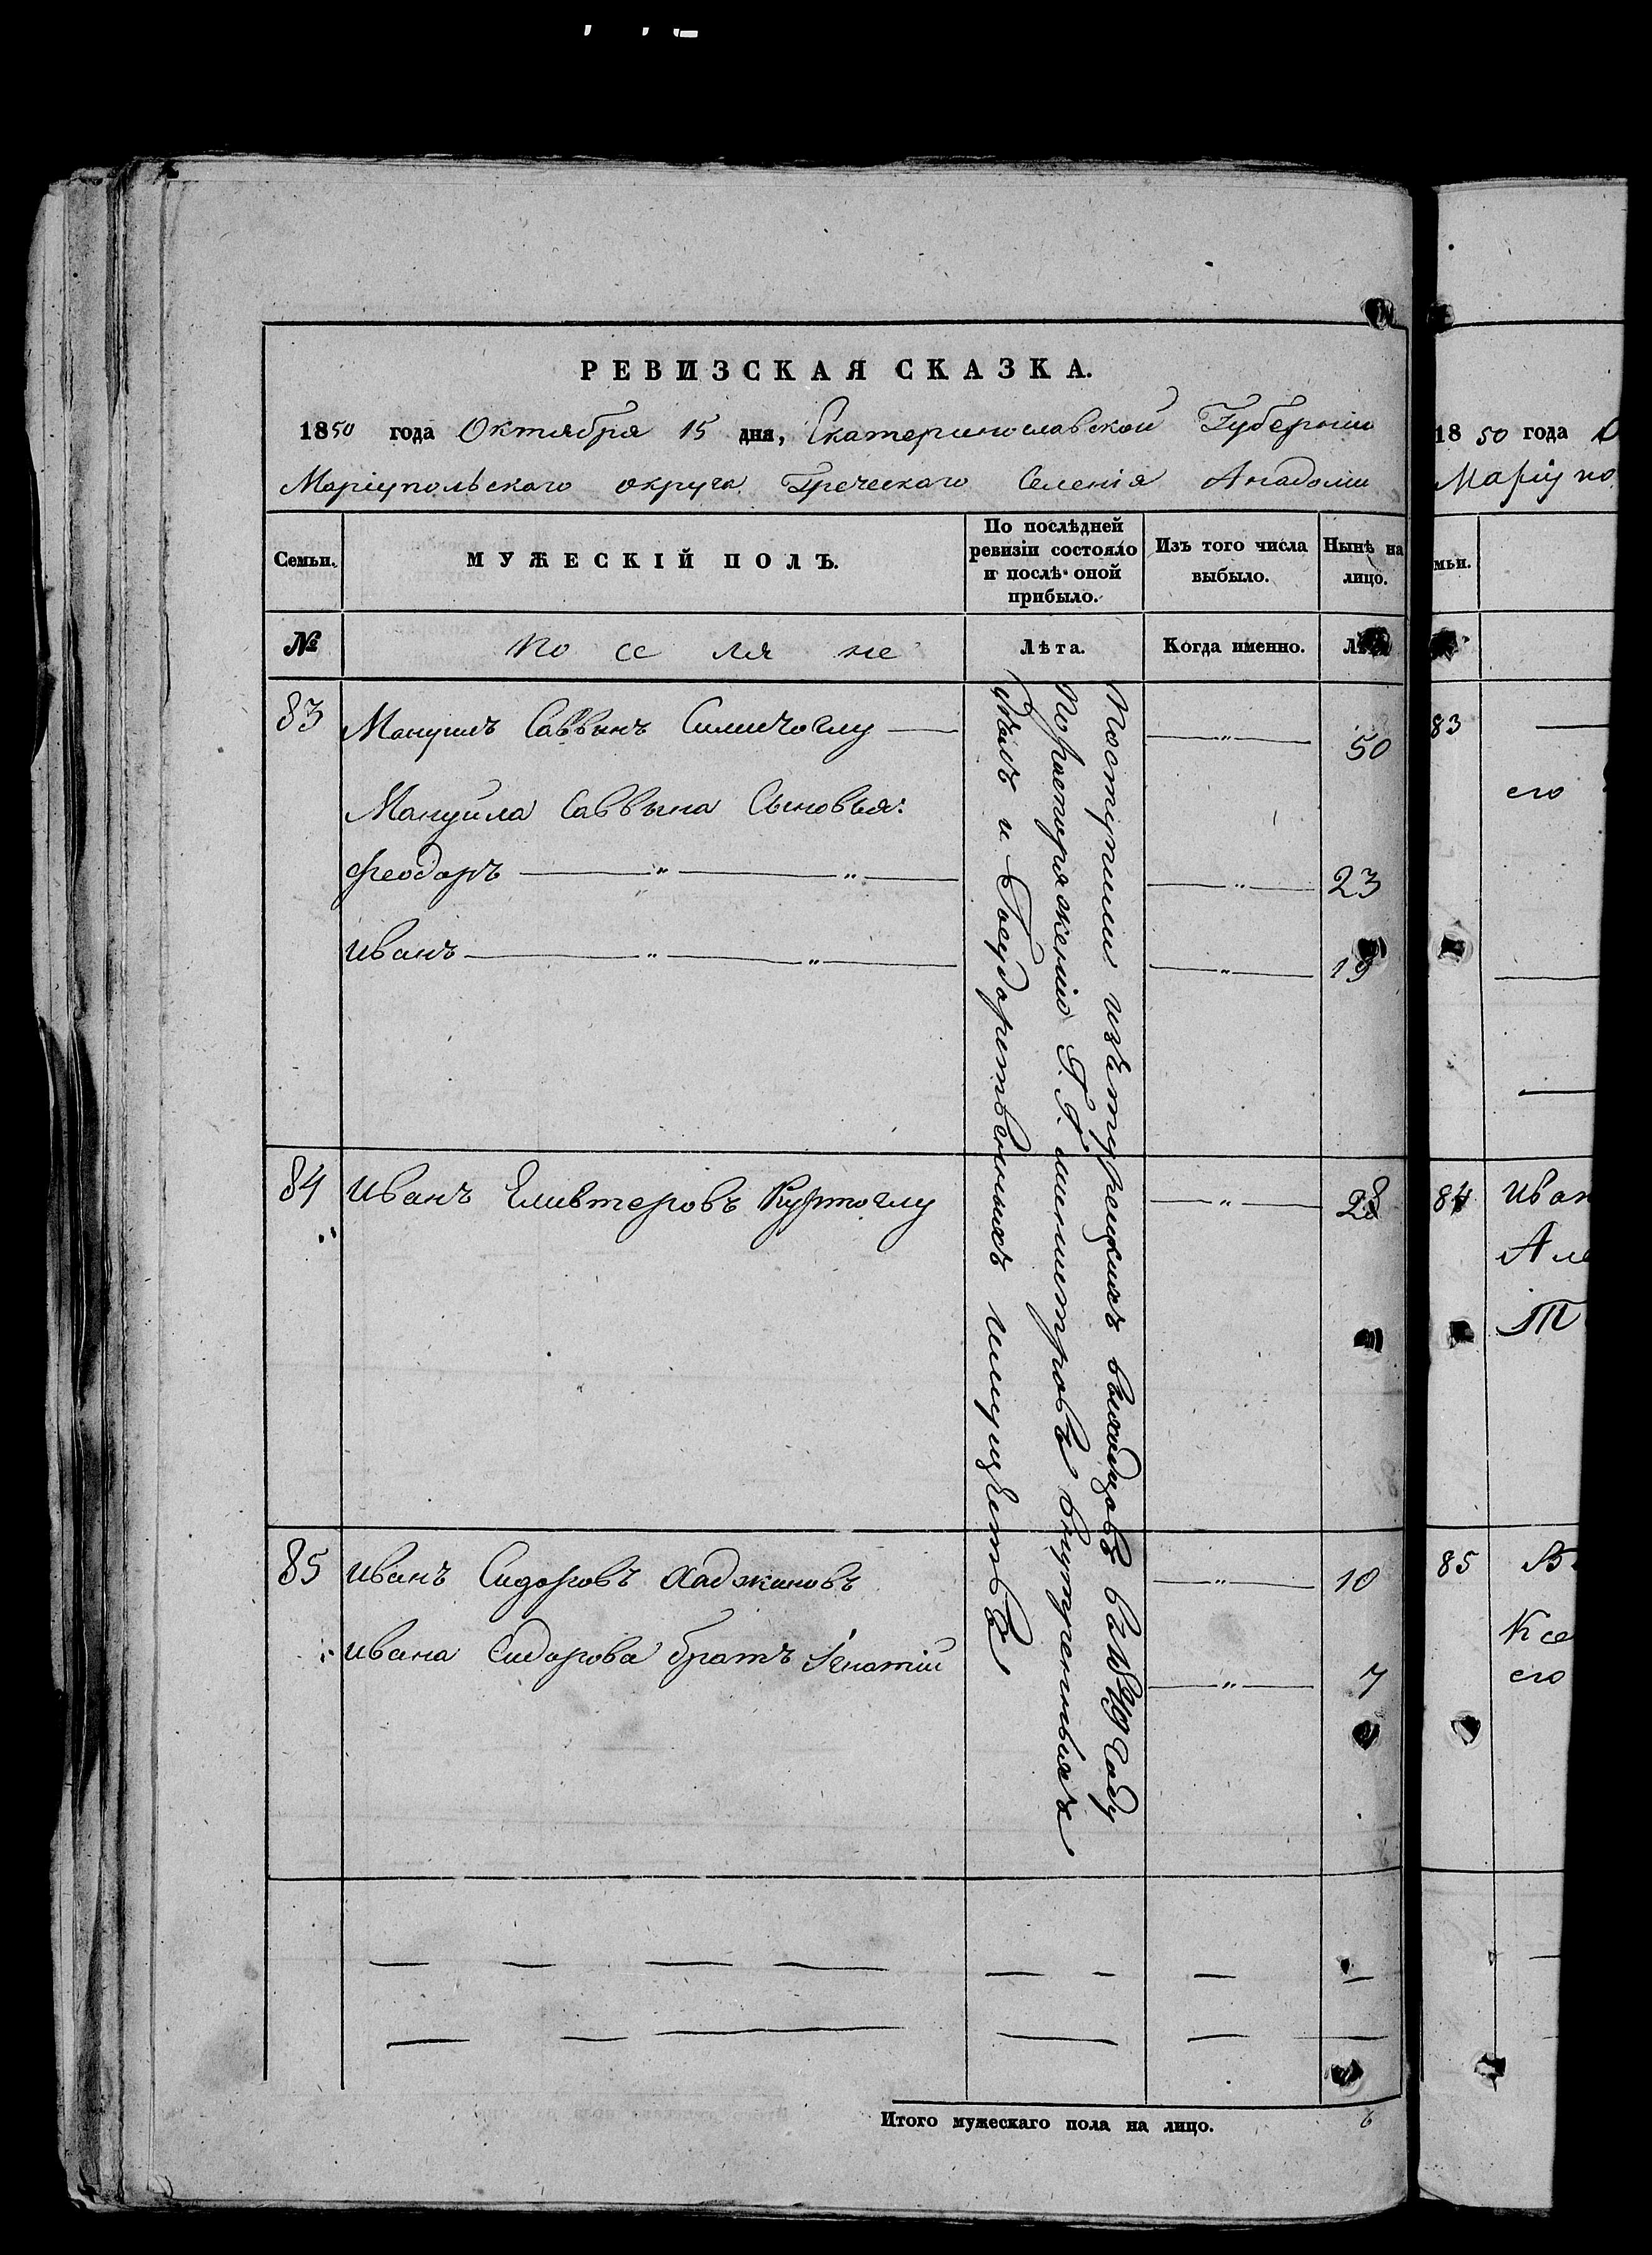 РЕВИЗСКАЯ СКАЗКА.
1850 года Октября 15 дня, Екатеринославской Губерніи
Маріупольскаго округа Греческаго Селенія Анадоли
Семьи.
МУЖЕСКІЙ ПОЛЪ.
По послѣдней
ревизіи состояло
и послѣ оной
прибыло.
Изъ того числа
выбыло.
Нынѣ на
лицо.
№
По се ля не
Лѣта.
Когда именно.
Лѣта
83 Мануилъ Саввинъ — " — 50
Мануила Саввина Сыновья:
Феодоръ — " — " — " — 23
Иванъ — " — " — " — 19
84 Иванъ Еливтеровъ Куртоглу — " — 28
85 Иванъ Сидоровъ Хаджиновъ — " — 10
Ивана Сидорова братъ Игнатій — " — 7
Поступили изъ турецкихъ выходцовъ въ году
По распоряженію Г.Г. министровъ внутренныхъ
дѣлъ и Государственныхъ имуществъ
Итого мужескаго пола на лицо. 6
1850 года О
Маріупо
мьи.
83
его
84 Иван
Але
Т
85
Ксе
его